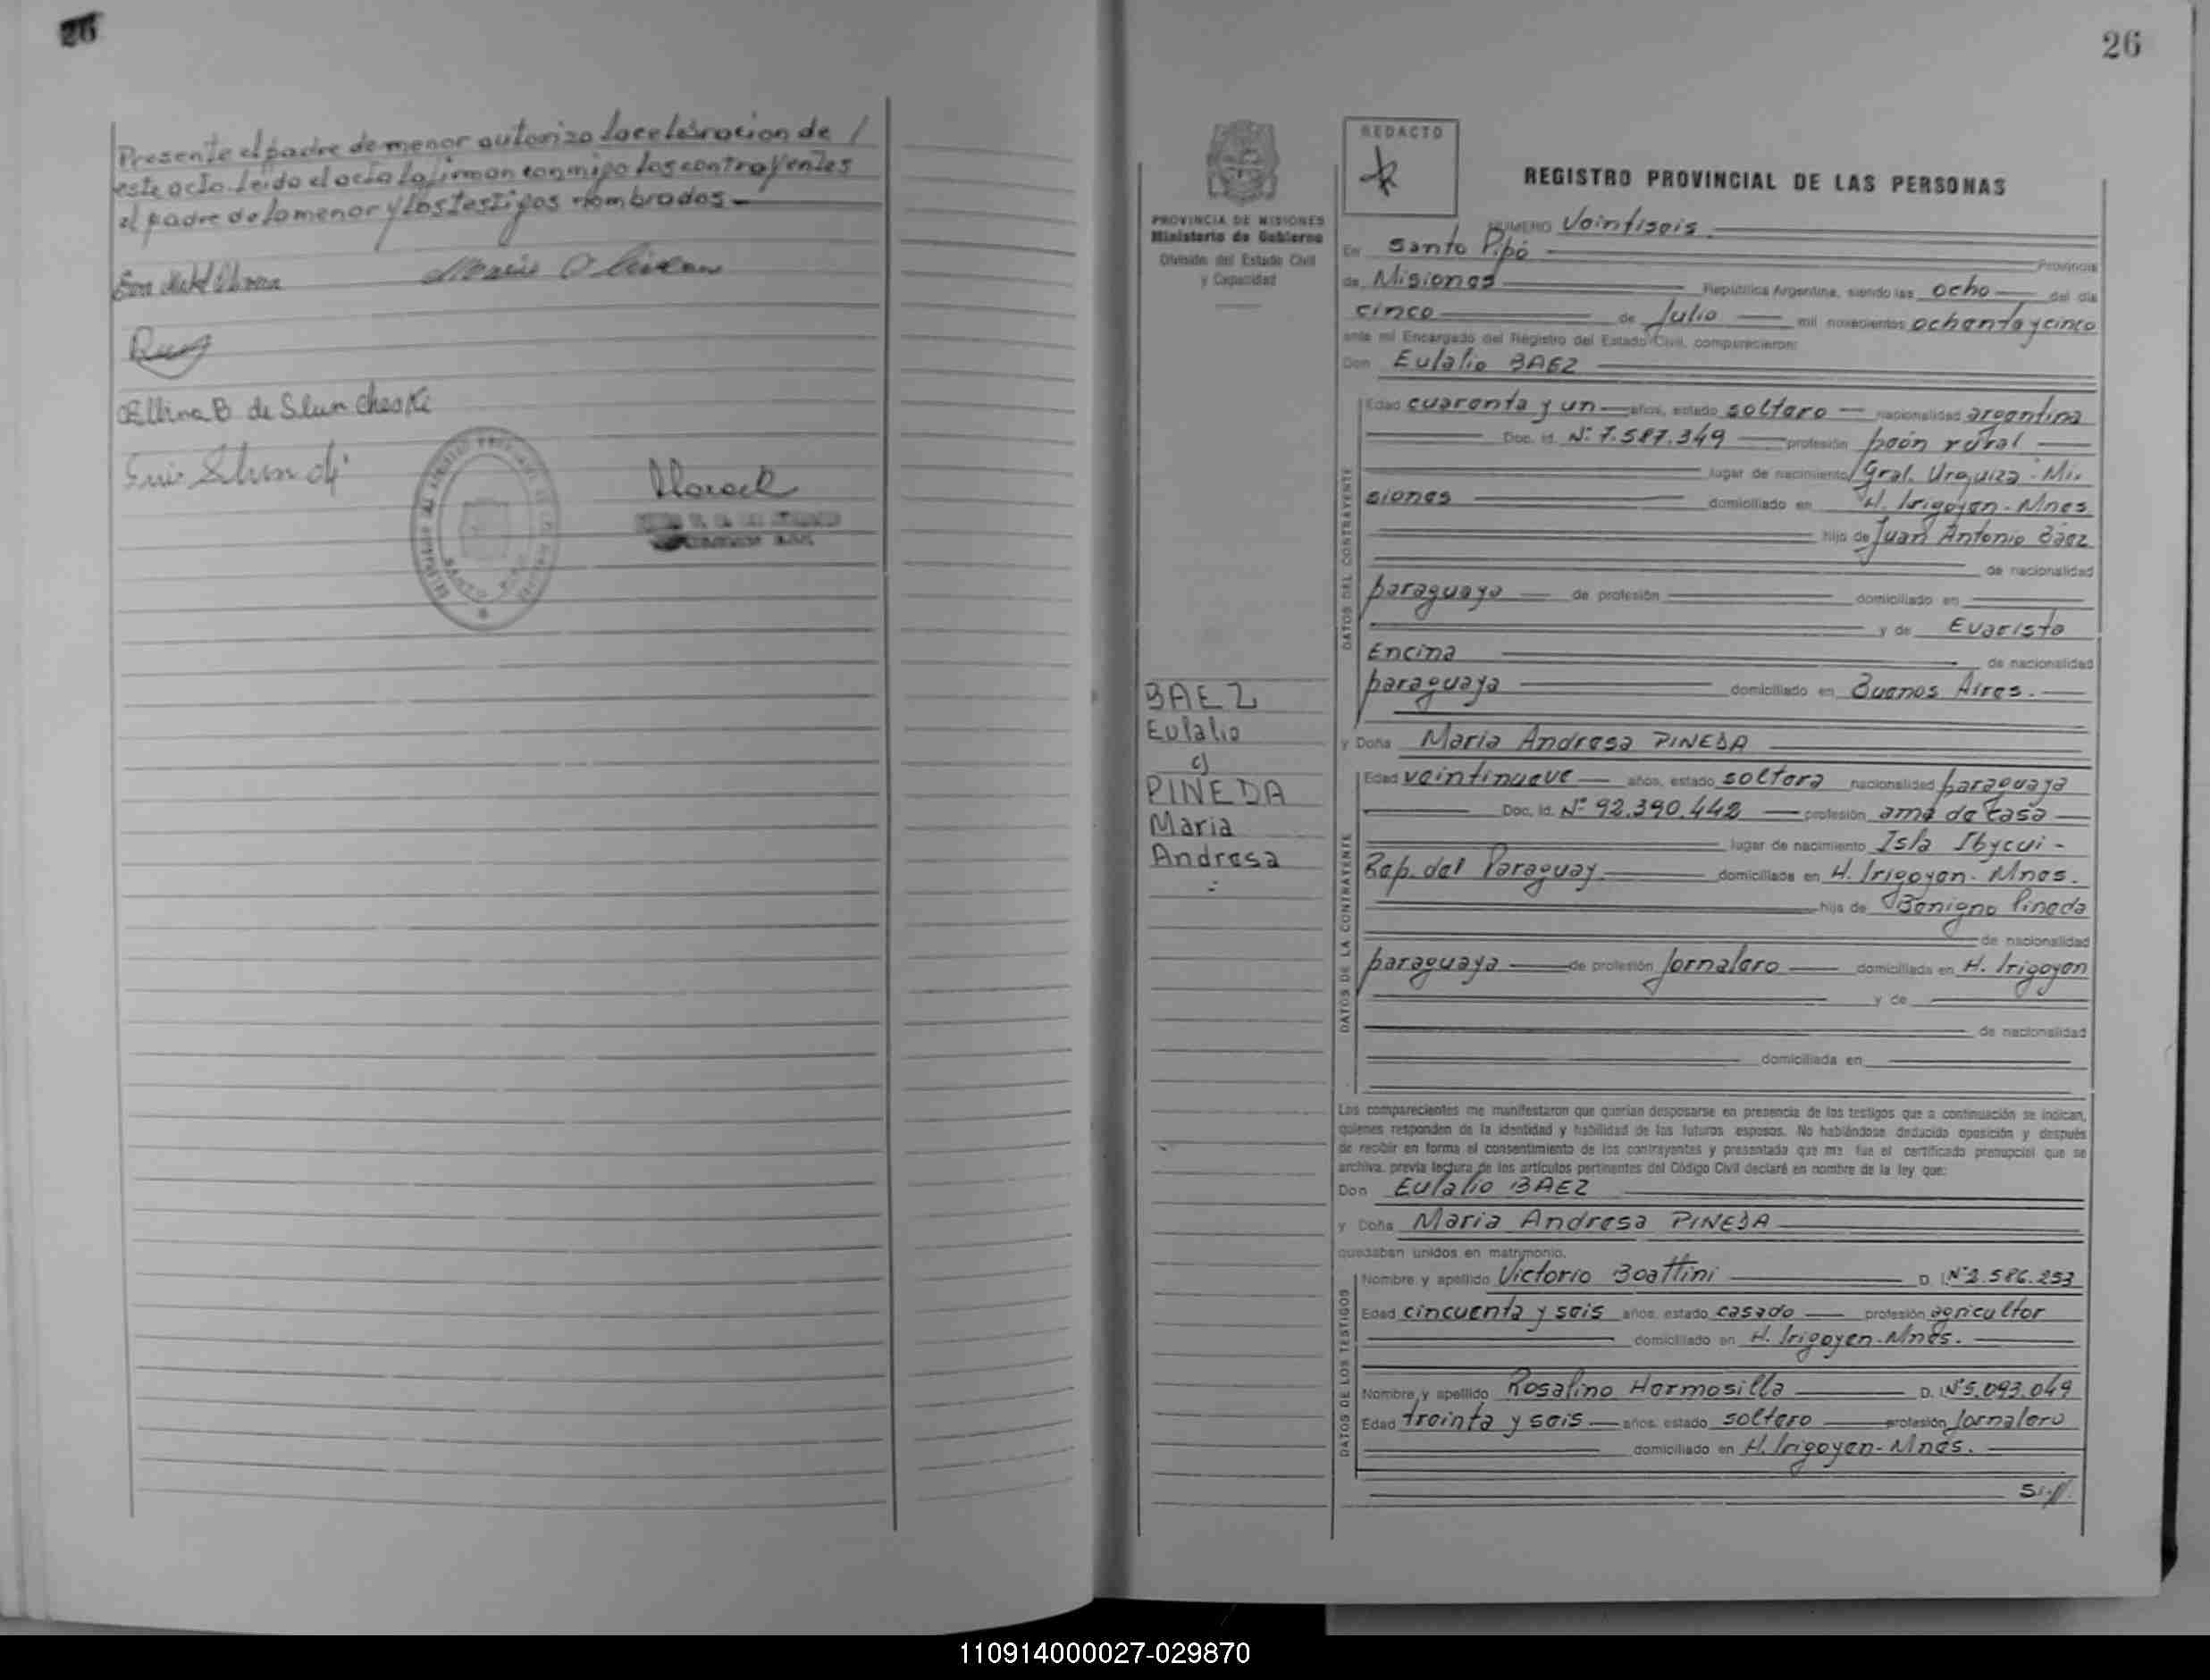 26
Presente el padre de menor autoriza la celebracion de /
este acto. Leido el acta la firman conmigo los contrayentes
el padre de la menor y los testigos nombrados.
Mario Olivera
Ellina B de Sluncheski
26
REDACTO
REGISTRO PROVINCIAL DE LAS PERSONAS
PROVINCIA DE MISIONES
Ministerio de Gobierno
División del Estado Civil
y Capacidad
BAEZ
Eulalio
c/
PINEDA
Maria
Andresa
NUMERO Veintiseis
En Santo Pipó Provincia
de Misiones República Argentina, siendo las ocho del día
cinco de Julio mil novecientos ochenta y cinco
ante mí Encargado del Registro del Estado Civil, comparecieron:
Don Eulalio BAEZ
DATOS DEL CONTRAYENTE
Edad cuarenta y un años, estado soltero nacionalidad argentina
Doc. Id. Nº 7.587.349 profesión peón rural
lugar de nacimiento Gral. Urquiza - Mi-
siones domiciliado en H. Irigoyen - Mnes
hijo de Juan Antonio Báez
de nacionalidad
paraguaya de profesión domiciliado en
y de Evarista
Encina de nacionalidad
paraguaya domiciliado en Buenos Aires.
y Doña Maria Andresa PINEDA
DATOS DE LA CONTRAYENTE
Edad veintinueve años, estado soltera nacionalidad paraguaya
Doc. Id. Nº 92.390.442 profesión ama de casa
lugar de nacimiento Isla Ibycui -
Rep. del Paraguay domiciliada en H. Irigoyen - Mnes.
hija de Benigno Pineda
de nacionalidad
paraguaya de profesión Jornalero domiciliado en H. Irigoyen
y de
de nacionalidad
domiciliada en
Los comparecientes me manifestaron que querían desposarse en presencia de los testigos que a continuación se indican,
quienes responden de la identidad y habilidad de los futuros esposos. No habiéndose deducido oposición y después
de recibir en forma el consentimiento de los contrayentes y presentado que me fue el certificado prenupcial que se
archiva, previa lectura de los artículos pertinentes del Código Civil declaré en nombre de la ley que:
Don Eulalio BAEZ
y Doña Maria Andresa PINEDA
quedaban unidos en matrimonio.
DATOS DE LOS TESTIGOS
Nombre y apellido Victorio Boattini D. I. Nº 2.586.253
Edad cincuenta y seis años, estado casado profesión agricultor
domiciliado en H. Irigoyen - Mnes.
Nombre y apellido Rosalino Hermosilla D. I. Nº 5.093.049
Edad treinta y seis años, estado soltero profesión Jornalero
domiciliado en H. Irigoyen - Mnes.
110914000027-029870